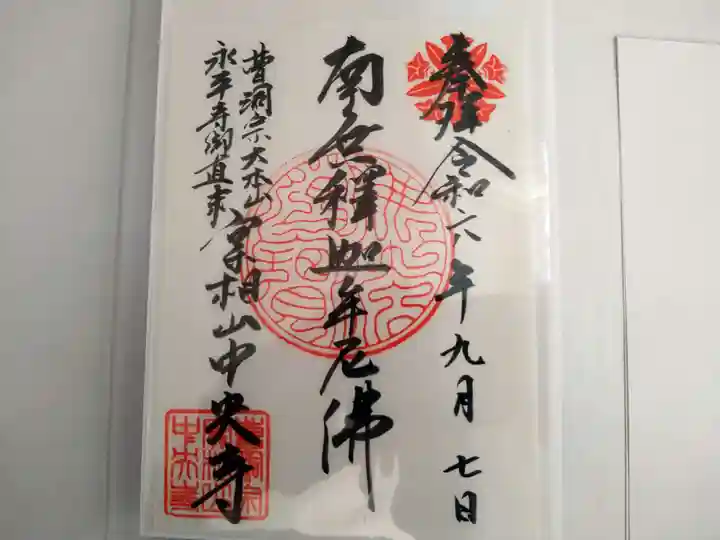 奉拝 令和六年九月七日
南無釋迦牟尼佛
曹洞宗大本山
永平寺御直末
實相山中央寺